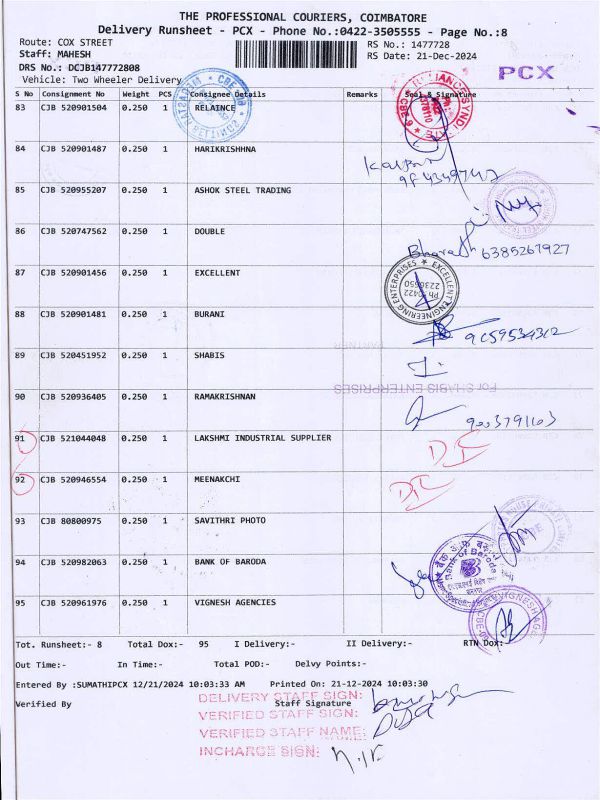 THE PROFESSIONAL COURIERS, COIMBATORE
Delivery Runsheet - PCX - Phone No.:0422-3505555 - Page No.:8
Route: COX STREET
RS No.: 1477728
Staff: MAHESH
RS Date: 21-Dec-2024
DRS No.: DCJB147772808
PCX
Vehicle: Two Wheeler Delivery
S No Consignment No Weight PCS Consignee Details Remarks Seal & Signature
83 CJB 520901504 0.250 1 RELAINCE
84 CJB 520901487 0.250 1 HARIKRISHHNA
85 CJB 520955207 0.250 1 ASHOK STEEL TRADING
86 CJB 520747562 0.250 1 DOUBLE
Bharath 6385267927
87 CJB 520901456 0.250 1 EXCELLENT
EXCELLENT ENGINEERING ENTERPRISES
88 CJB 520901481 0.250 1 BURANI
89 CJB 520451952 0.250 1 SHABIS
PARTNER
For SHABIS ENTERPRISES
90 CJB 520936405 0.250 1 RAMAKRISHNAN
9003791103
91 CJB 521044048 0.250 1 LAKSHMI INDUSTRIAL SUPPLIER
92 CJB 520946554 0.250 1 MEENAKCHI
93 CJB 80800975 0.250 1 SAVITHRI PHOTO
94 CJB 520982063 0.250 1 BANK OF BARODA
Bank of Baroda
95 CJB 520961976 0.250 1 VIGNESH AGENCIES
Tot. Runsheet:- 8 Total Dox:- 95 I Delivery:- II Delivery:- RTN Dox:-
Out Time:- In Time:- Total POD:- Delvy Points:-
Entered By :SUMATHIPCX 12/21/2024 10:03:33 AM Printed On: 21-12-2024 10:03:30
Verified By Staff Signature
DELIVERY STAFF SIGN:
VERIFIED STAFF SIGN:
VERIFIED STAFF NAME:
INCHARGE SIGN: